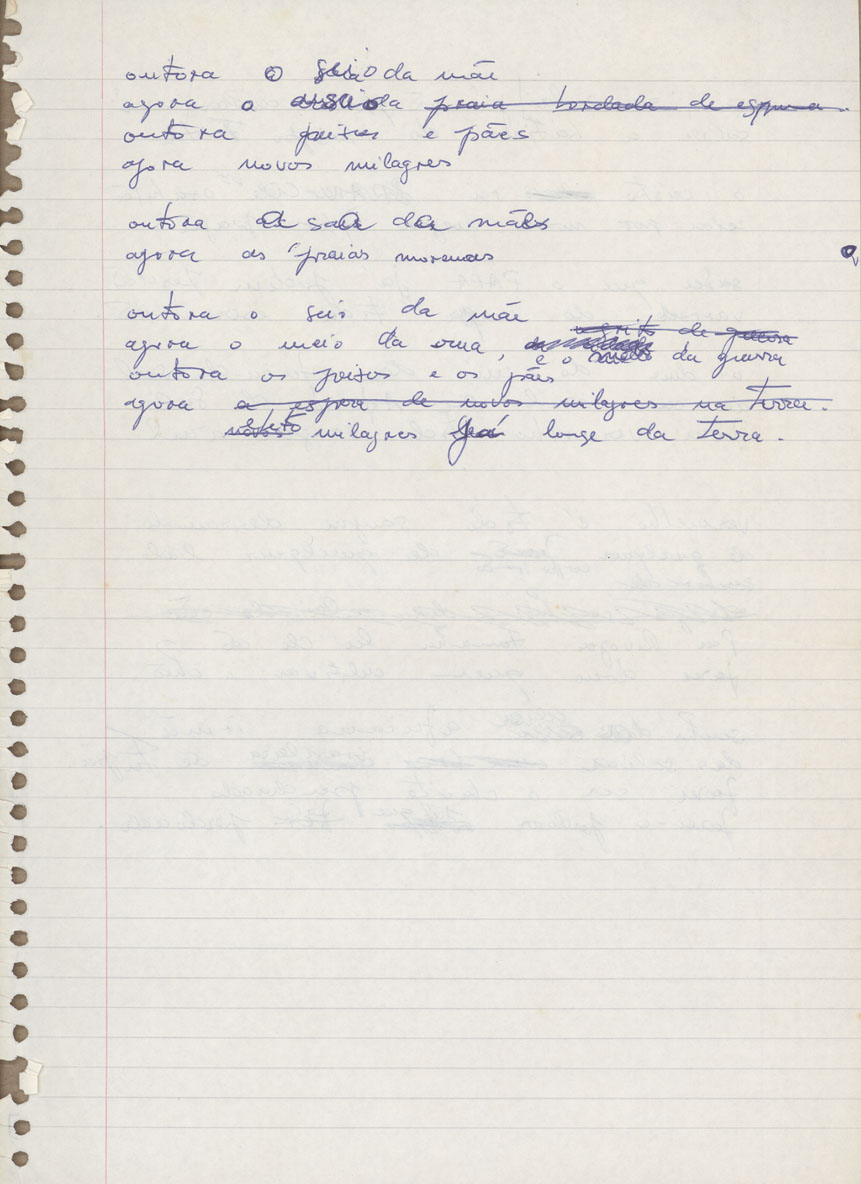 outora o seio da mãe
agora o seio da praia bordada de espuma
outora peixes e pães
agora novos milagres
outora a saia das mães
agora as praias morenas
outora o seio da mãe
o grito de guerra
agora o meio da rua, e o meio da guerra
outora os peixes e os pães
agora a espera de novos milagres na terra.
novos milagres já longe da terra.